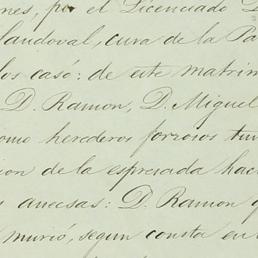 ones, por el Licenciado D
Sandoval, cura de la Pa
los casó: de este matrim
D. Ramon, D. Miguel
como herederos forzosos tuv
ion de la espresada haci
s anecsas: D. Ramon q
murió, segun consta en